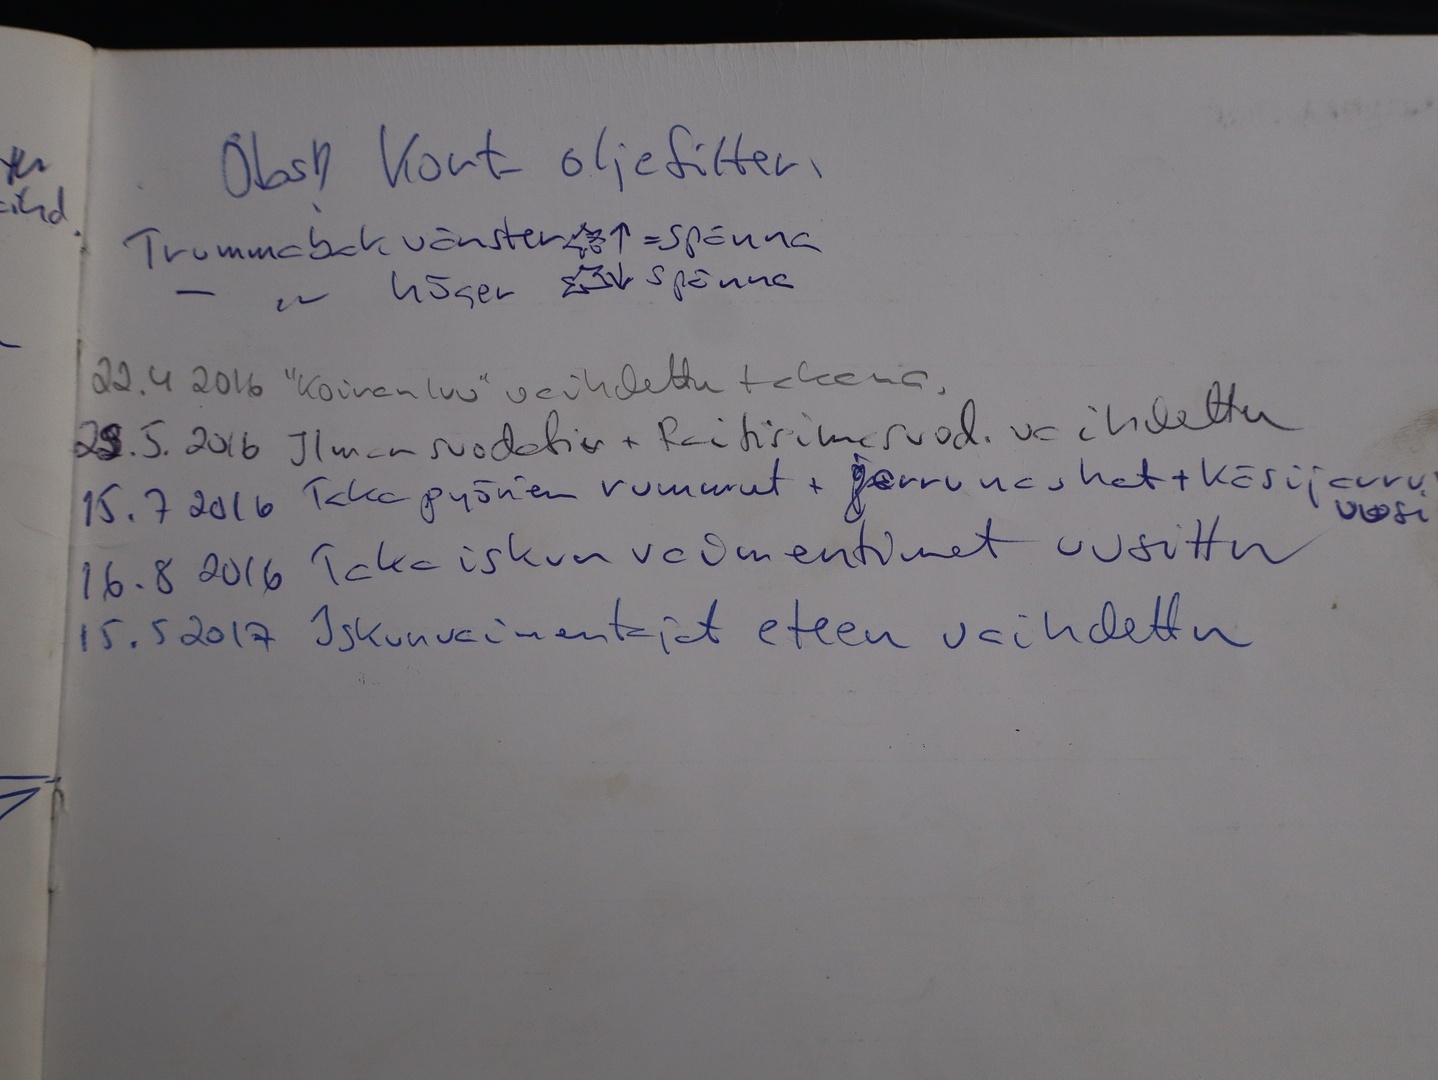 Obs!! Kort oljefilter.
Trummabak vänster ↑ = spänna
— " — höger ↓ spänna
22.4 2016 "Koiranluu" vaihdettu takana.
28.5. 2016 Ilmansuodatin + Raitisilmasuod. vaihdettu
15.7 2016 Takapyörien rummut + jarrunashat + käsijarru
16.8 2016 Taka iskunvaimentimet uusittu
15.5 2017 Iskunvaimentajat eteen vaihdettu